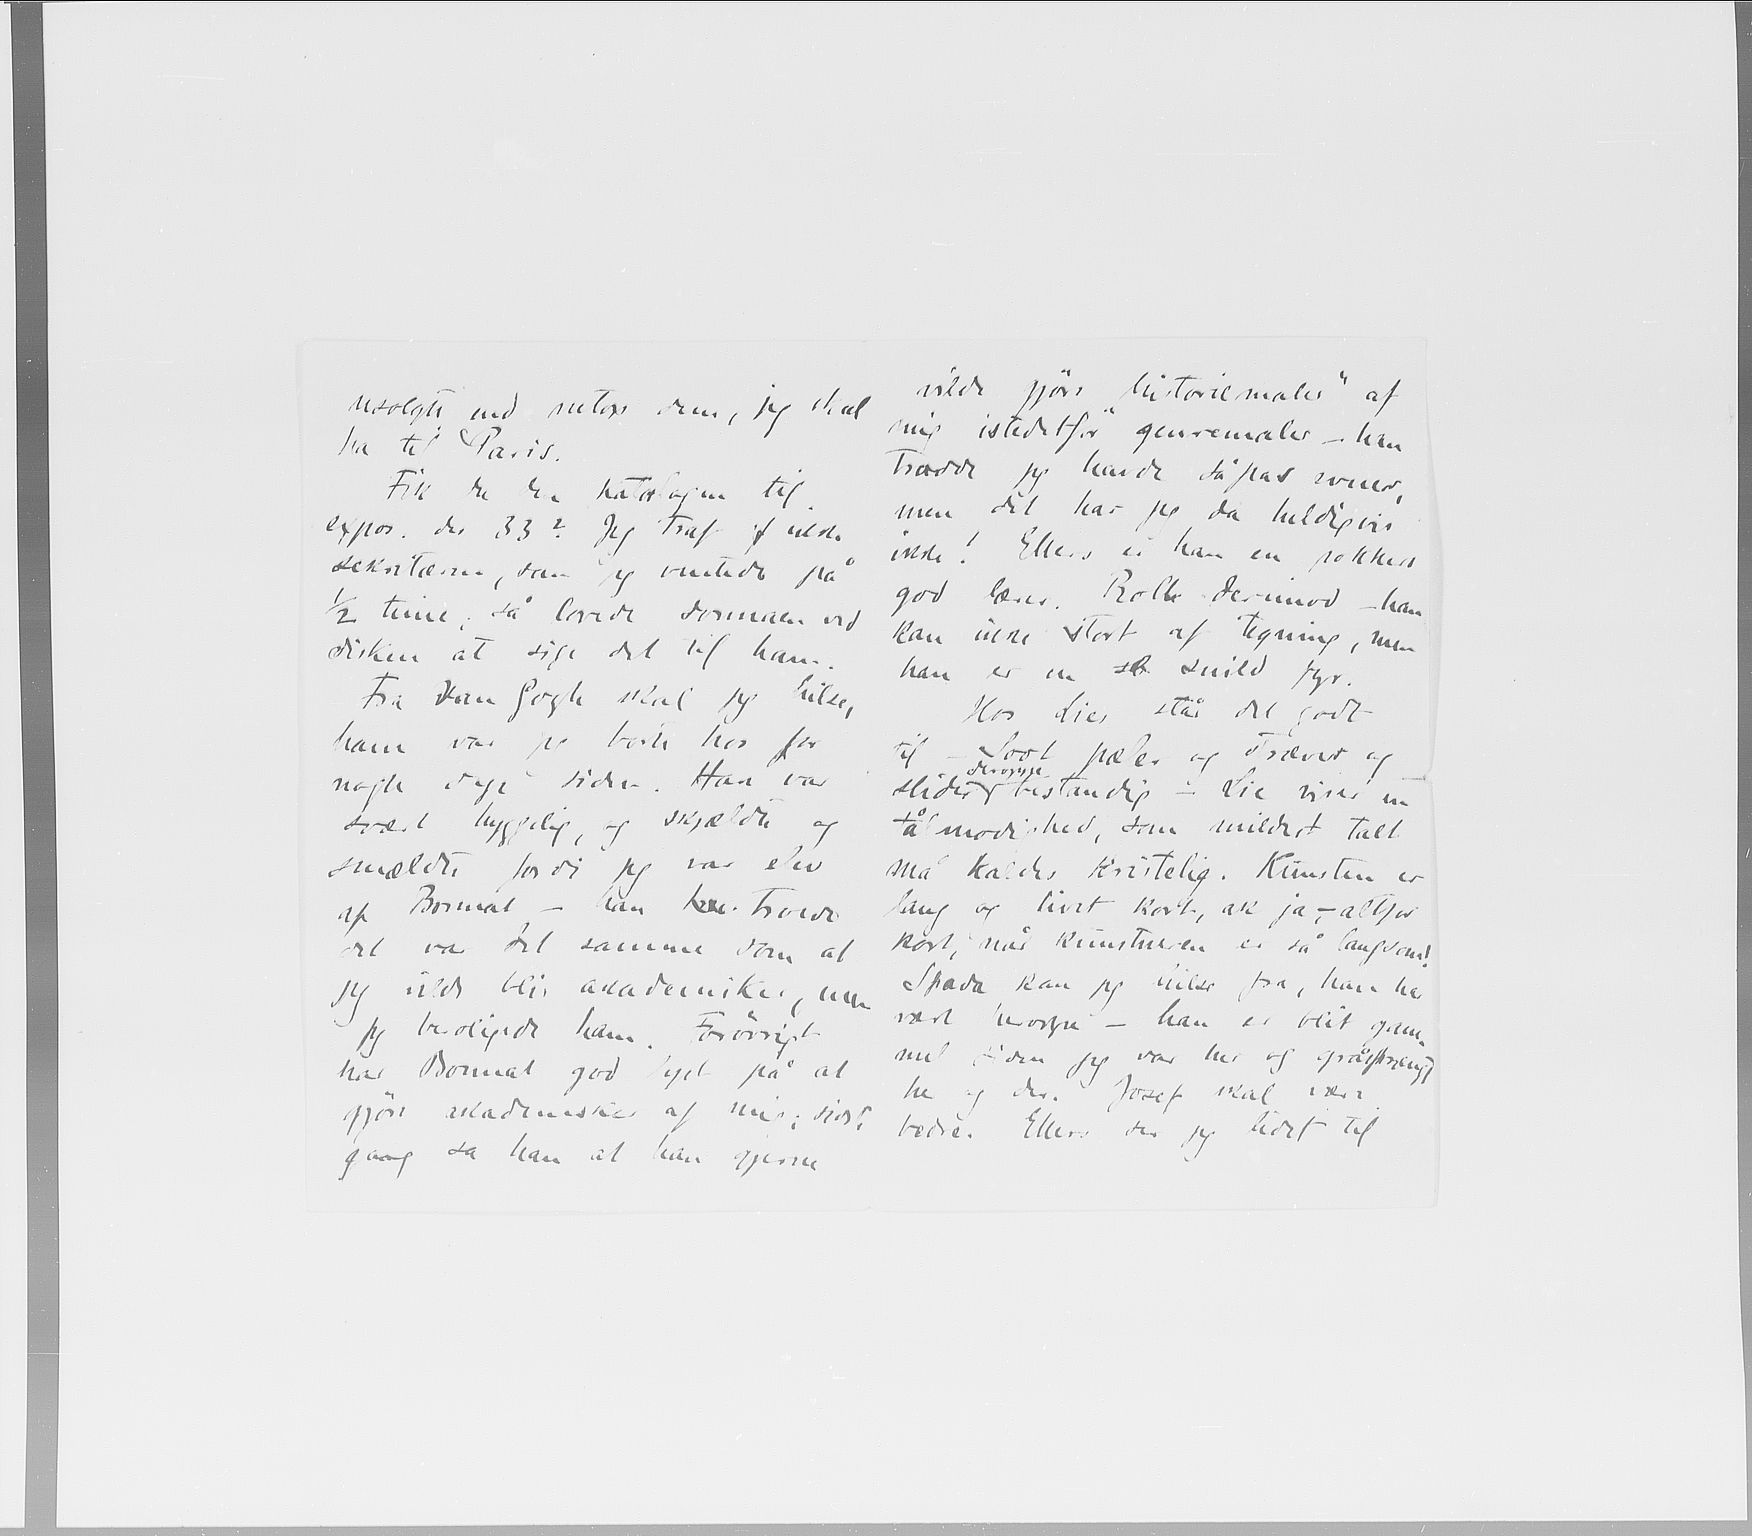 usolgte med netop dem, jeg skal
ha til Paris.
Fik du den katalogen til
expos. des 33? Jeg traf ikke
sekretæren, som jeg ventede på
1/2 time; så lovede dormaen ved
disken at sige det til ham.
Fra Van Gogh skal jeg hilse,
ham var jeg borte hos for
nogle dage siden. Han var
svært hyggelig, og skjældte og
smældte fordi jeg var elev
af Bonnat – han troede
det var det samme som at
jeg vilde bli akademiker, men
jeg beroligede ham. Forövrigt
har Bonnat god lyst på at
gjöre akademiker af mig; sidste
gang sa han at han gjerne
vilde gjöre "historiemaler" af
mig istedetfor genremaler – han
troede jeg havde såpas evner,
men det har jeg da heldigvis
ikke! Ellers er han en pokkers
god lærer. Roll derimod – han
kan ikke stort af tegning, men
han er en snild fyr.
Hos Lies står det godt
til – Soot pæler og stræver og
slider deroppe bestandig – Lie viser en
tålmodighed, som mildest talt
må kaldes kristelig. Kunsten er
lang og livet kort, ak ja, – altfor
kort, når kunstneren er så langsom!
Spada kan jeg hilse fra, han har
vært heroppe – han er blit gam-
mel siden jeg var her og gråsprængt
her og der. Josef skal være
bedre. Ellers ser jeg lidet til